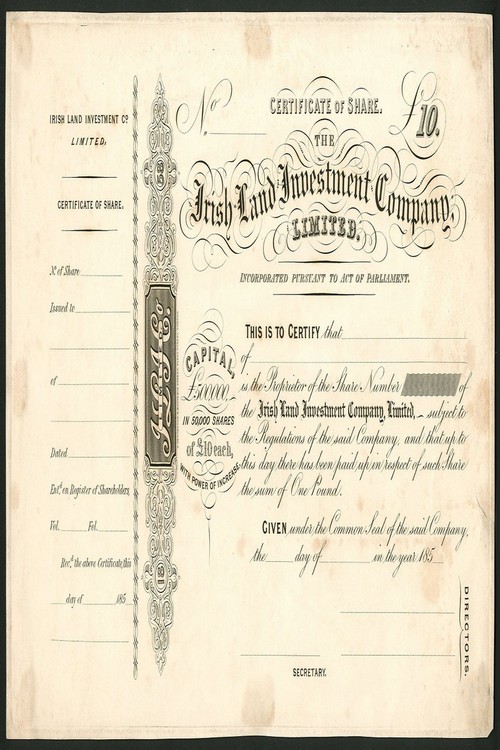 IRISH LAND INVESTMENT Cº
LIMITED,
CERTIFICATE OF SHARE.
Nº of Share
Issued to
of
Dated
Entd on Register of Shareholders
Vol. Fol.
Recd the above Certificate this
day of 185
I L I Co.
No.
CERTIFICATE OF SHARE.
£10.
THE
Irish Land Investment Company,
LIMITED.
INCORPORATED PURSUANT TO ACT OF PARLIAMENT.
CAPITAL,
£500,000,
IN 50,000 SHARES
of £10 each,
WITH POWER OF INCREASE
THIS IS TO CERTIFY that
of
is the Proprietor of the Share Number of
the Irish Land Investment Company, Limited, subject to
the Regulations of the said Company, and that up to
this day there has been paid up in respect of such Share
the sum of One Pound.
GIVEN under the Common Seal of the said Company,
the day of in the year 185
DIRECTORS.
SECRETARY.